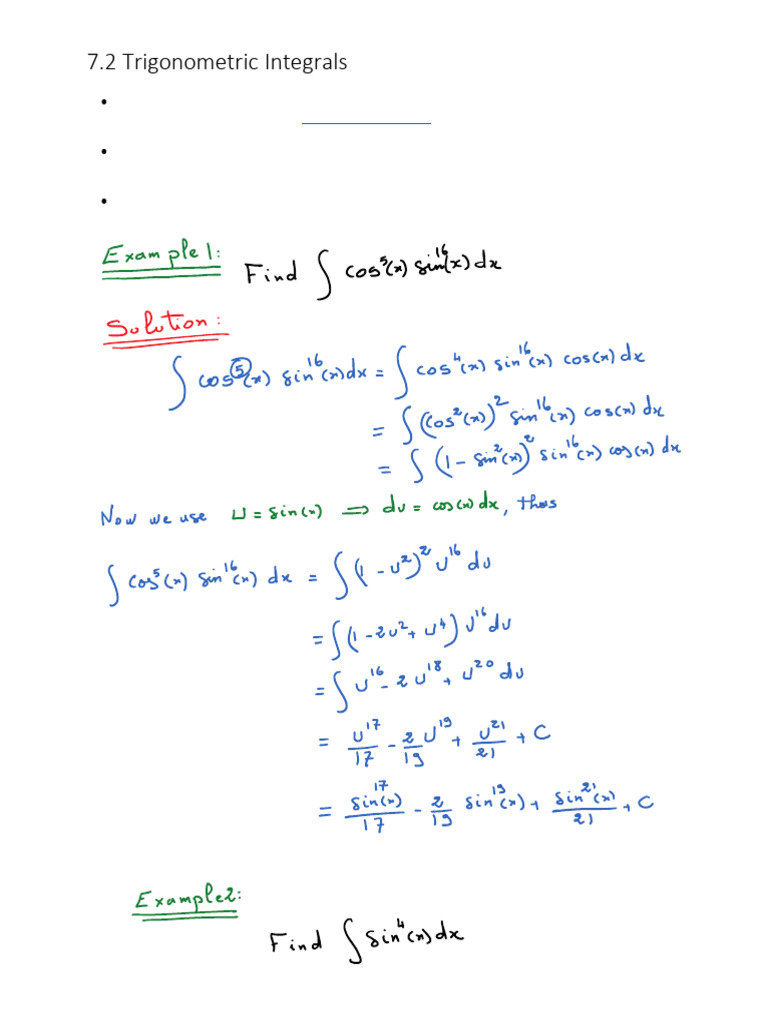 7.2 Trigonometric Integrals
•
•
•
Example 1: Find ∫ cos⁵(x) sin¹⁶(x) dx
Solution:
∫ cos⁵(x) sin¹⁶(x) dx = ∫ cos⁴(x) sin¹⁶(x) cos(x) dx
= ∫ (cos²(x))² sin¹⁶(x) cos(x) dx
= ∫ (1 - sin²(x))² sin¹⁶(x) cos(x) dx
Now we use u = sin(x) ⟹ du = cos(x) dx, thus
∫ cos⁵(x) sin¹⁶(x) dx = ∫ (1 - u²)² u¹⁶ du
= ∫ (1 - 2u² + u⁴) u¹⁶ du
= ∫ u¹⁶ - 2u¹⁸ + u²⁰ du
= u¹⁷/17 - 2/19 u¹⁹ + u²¹/21 + C
= sin¹⁷(x)/17 - 2/19 sin¹⁹(x) + sin²¹(x)/21 + C
Example 2:
Find ∫ sin⁴(x) dx